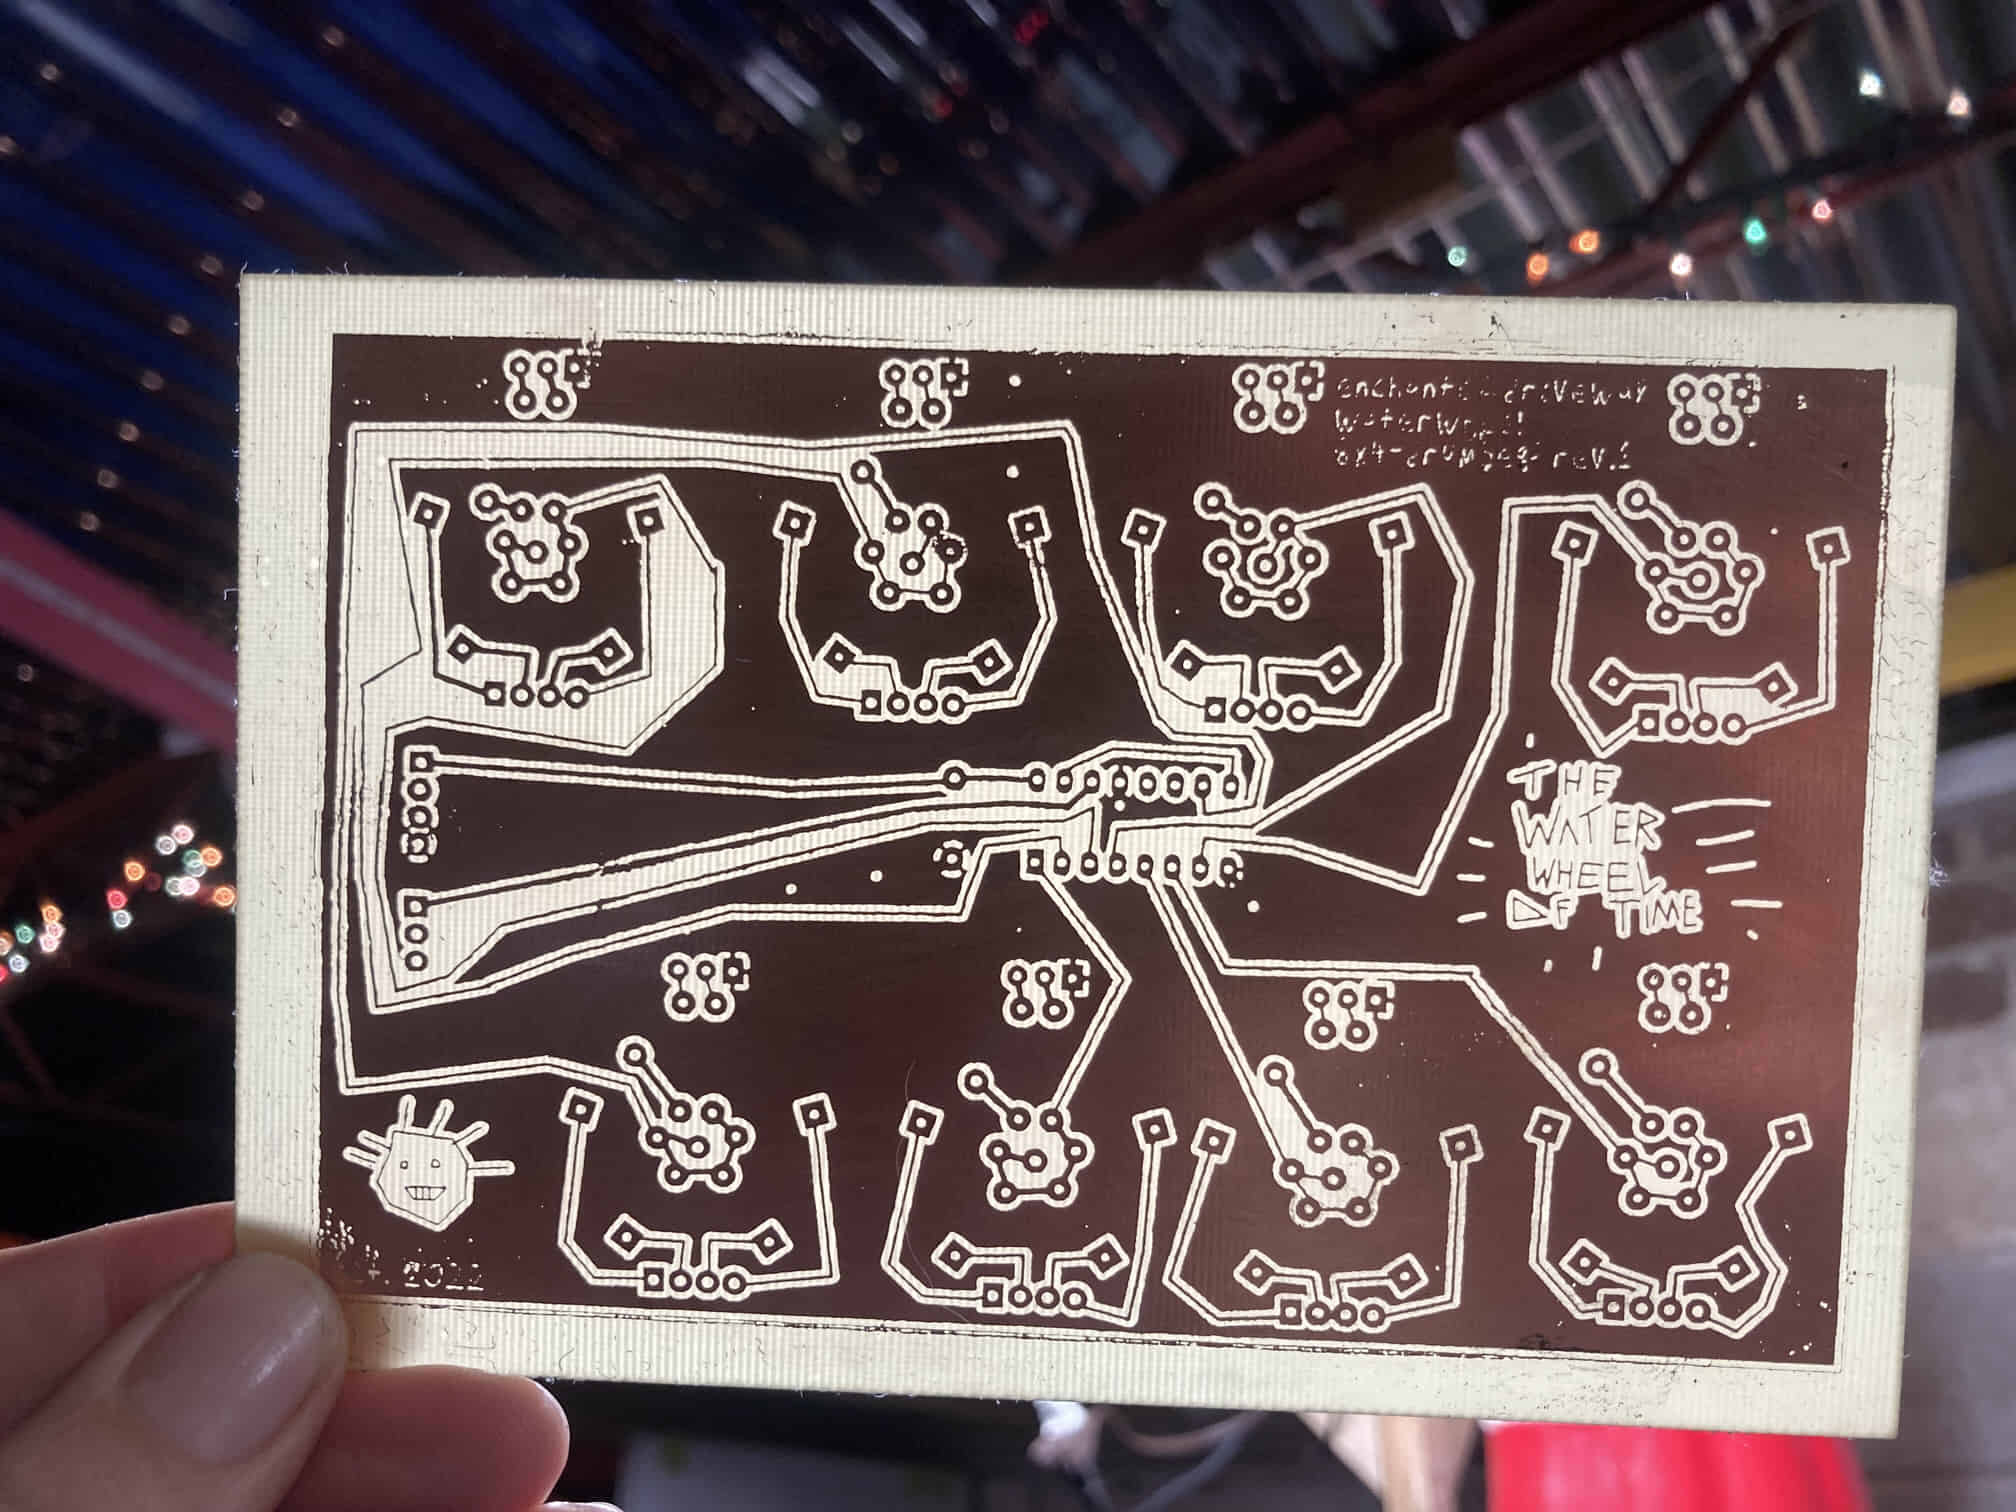 enchanted driveway
waterwheel
rev.1
THE
WATER
WHEEL
OF TIME
2022